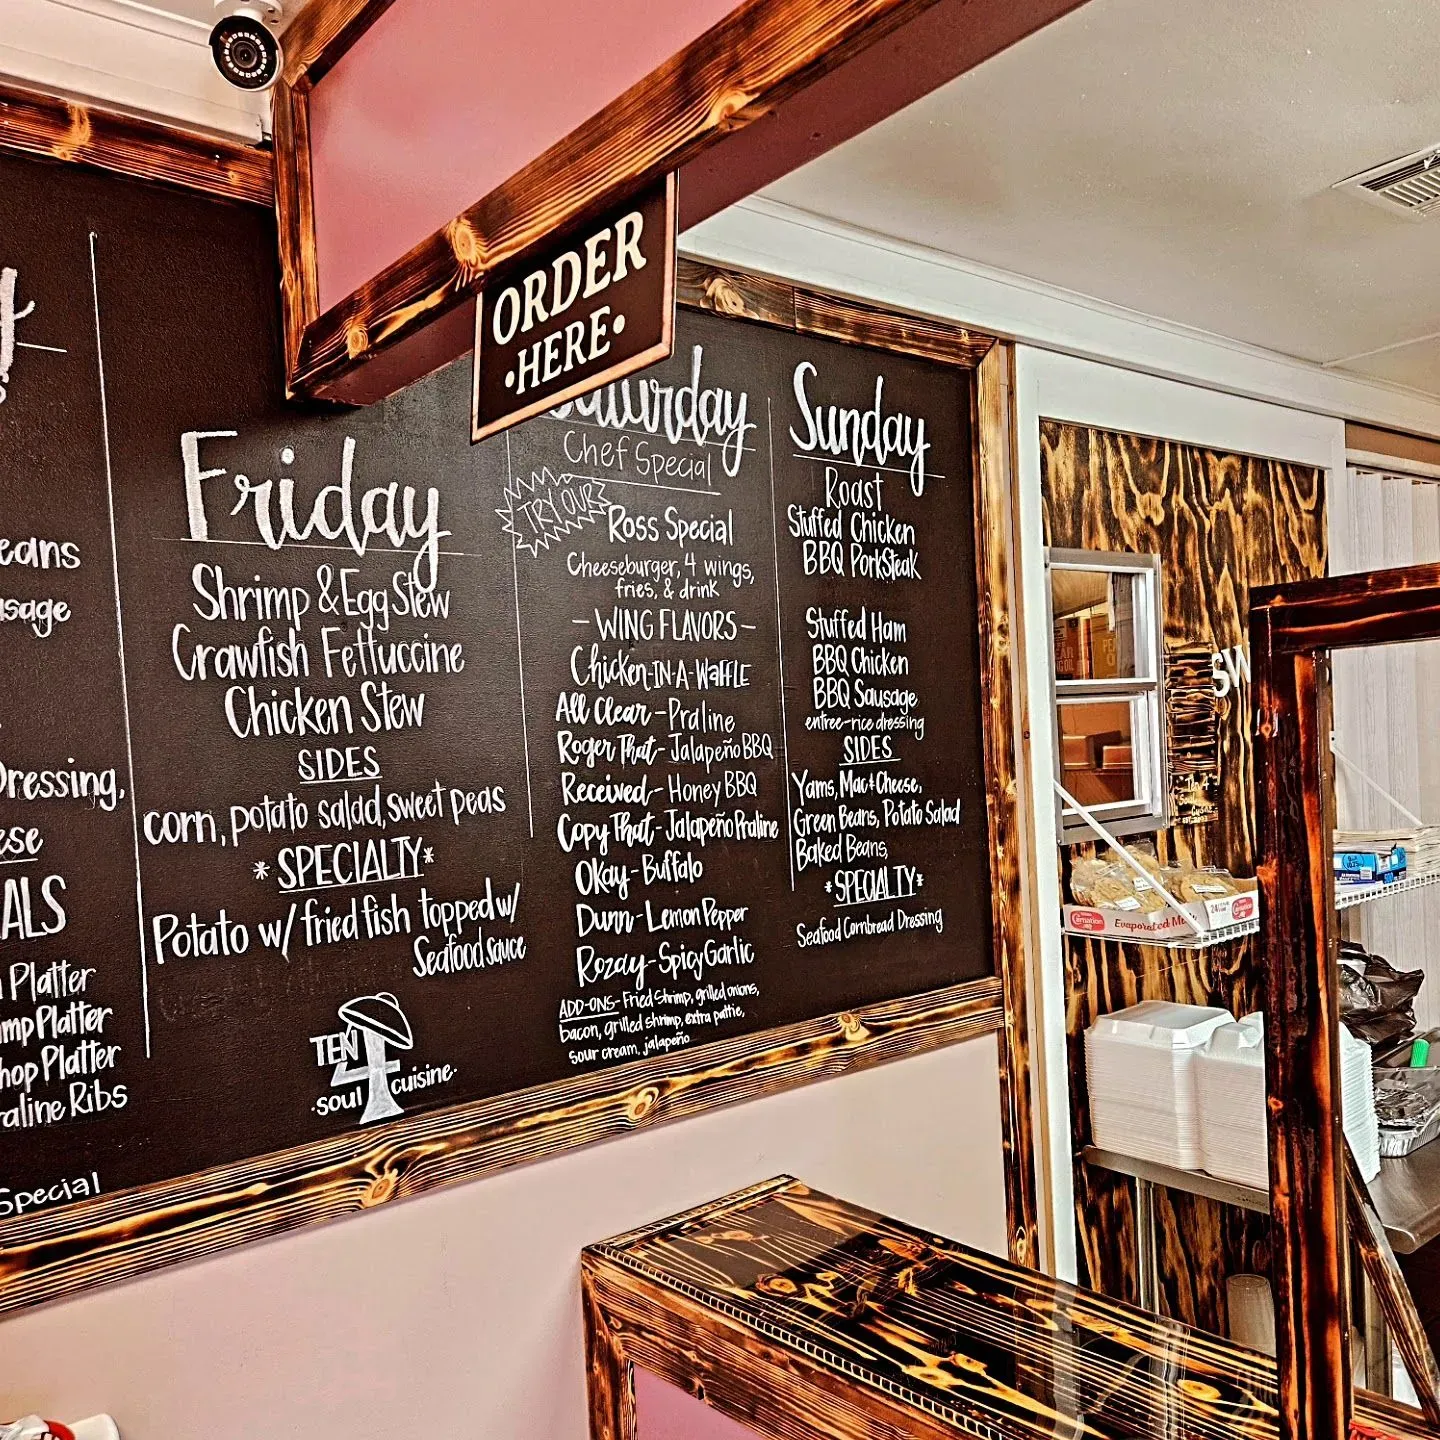 ORDER
•HERE•
eans
usage
Dressing,
ese
ALS
Platter
mp Platter
hop Platter
raline Ribs
Special
Friday
Shrimp & Egg Stew
Crawfish Fettuccine
Chicken Stew
SIDES
corn, potato salad, sweet peas
*SPECIALTY*
Potato w/ fried fish topped w/
Seafood sauce
TEN
4
•soul cuisine•
Saturday
Chef Special
TRY OUR
Ross Special
Cheeseburger, 4 wings,
fries, & drink
- WING FLAVORS -
Chicken-IN-A-WAFFLE
All Clear - Praline
Roger That - Jalapeño BBQ
Received - Honey BBQ
Copy That - Jalapeño Praline
Okay - Buffalo
Dunn - Lemon Pepper
Rozay - Spicy Garlic
ADD-ONS - Fried shrimp, grilled onions,
bacon, grilled shrimp, extra pattie,
sour cream, jalapeño
Sunday
Roast
Stuffed Chicken
BBQ PorkSteak
Stuffed Ham
BBQ Chicken
BBQ Sausage
entree-rice dressing
SIDES
Yams, Mac & Cheese,
Green Beans, Potato Salad
Baked Beans,
*SPECIALTY*
Seafood Cornbread Dressing
SW
Carnation
Evaporated
24
Carnation